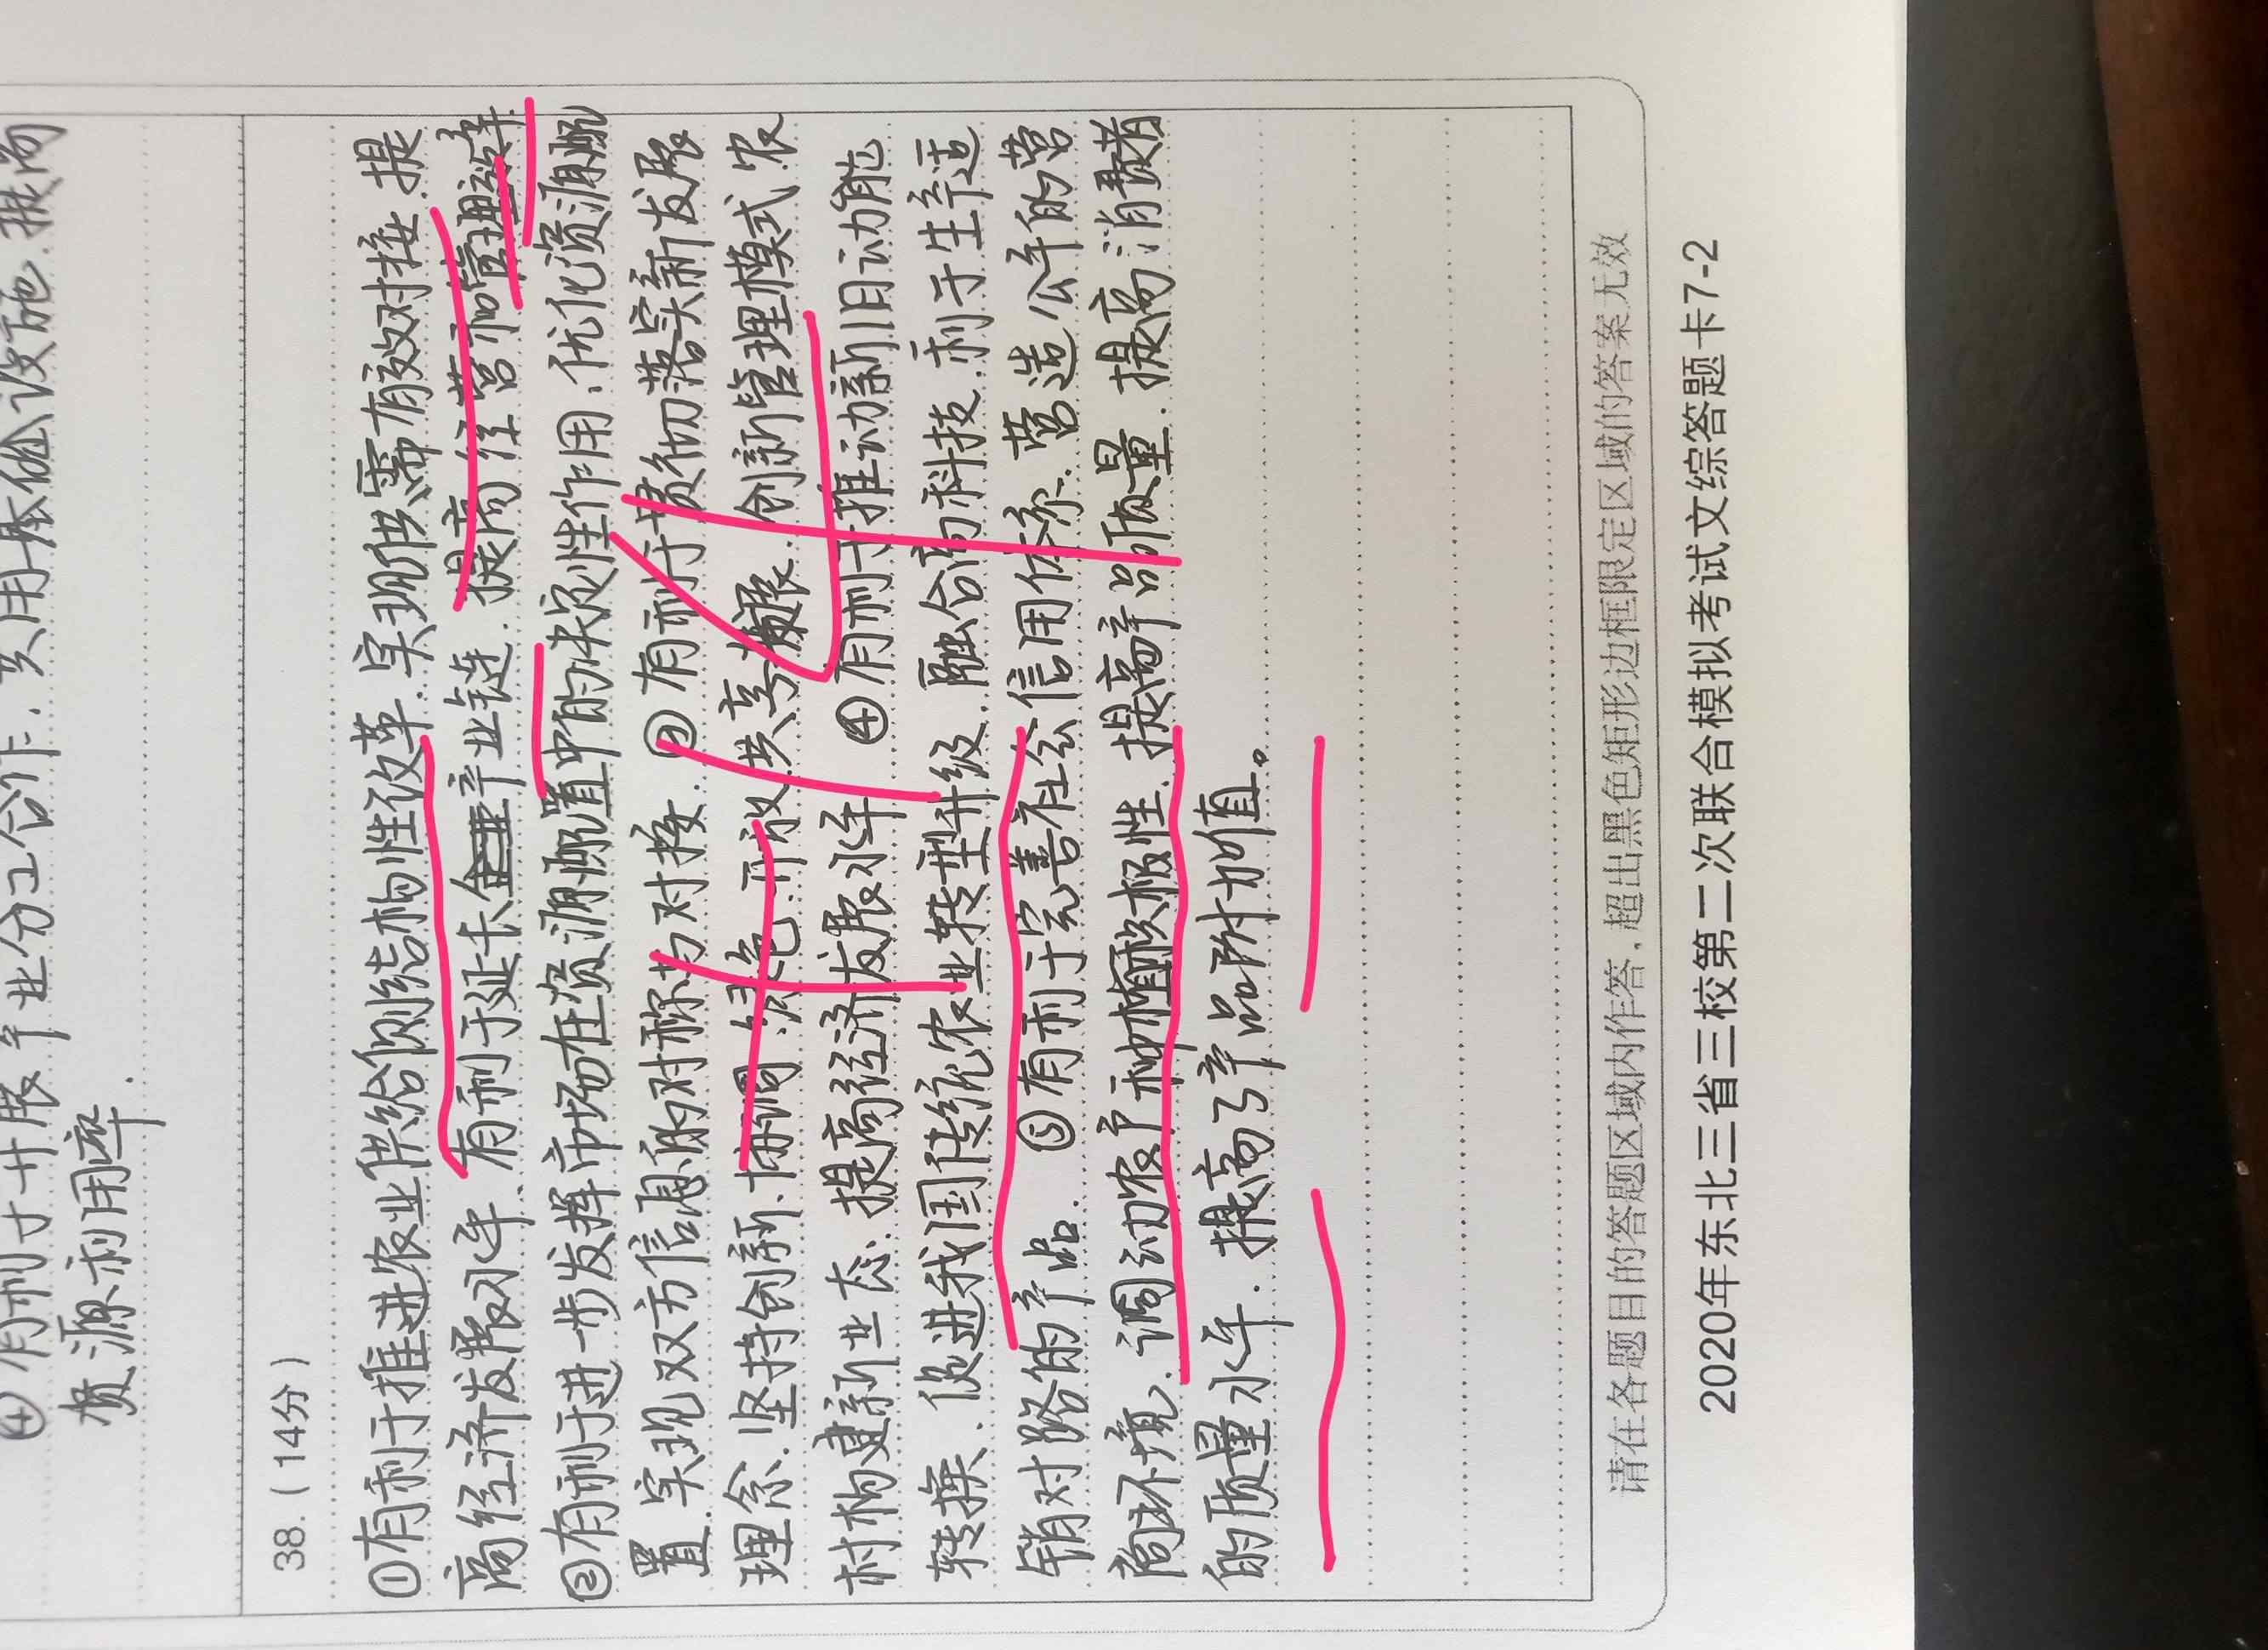 ④有利于开展产业分工合作,共用基础设施,提高
资源利用率.
38.（14分）
①有利于推进农业供给侧结构性改革.实现供需有效对接.提
高经济发展水平、有利于延长产业链.提高经营和管理效率
②有利于进一步发挥市场在资源配置中的决定性作用,优化资源配
置.实现双方信息的对称与对接.③有利于贯彻落实新发展
理念.坚持创新、协调、绿色、开放、共享发展.创新管理模式农
村构建新业态.提高经济发展水平 ④有利于推动新旧动能
转换、促进我国传统农业转型升级.融合高科技.利于生产适
销对路的产品. ⑤有利于完善社会信用体系.营造公平的营
商环境.调动农户种植积极性.提高产品质量.提高消费者
的质量水平.提高了产品附加值。
请在各题目的答题区域内作答，超出黑色矩形边框限定区域的答案无效
2020年东北三省三校第二次联合模拟考试文综答题卡7-2